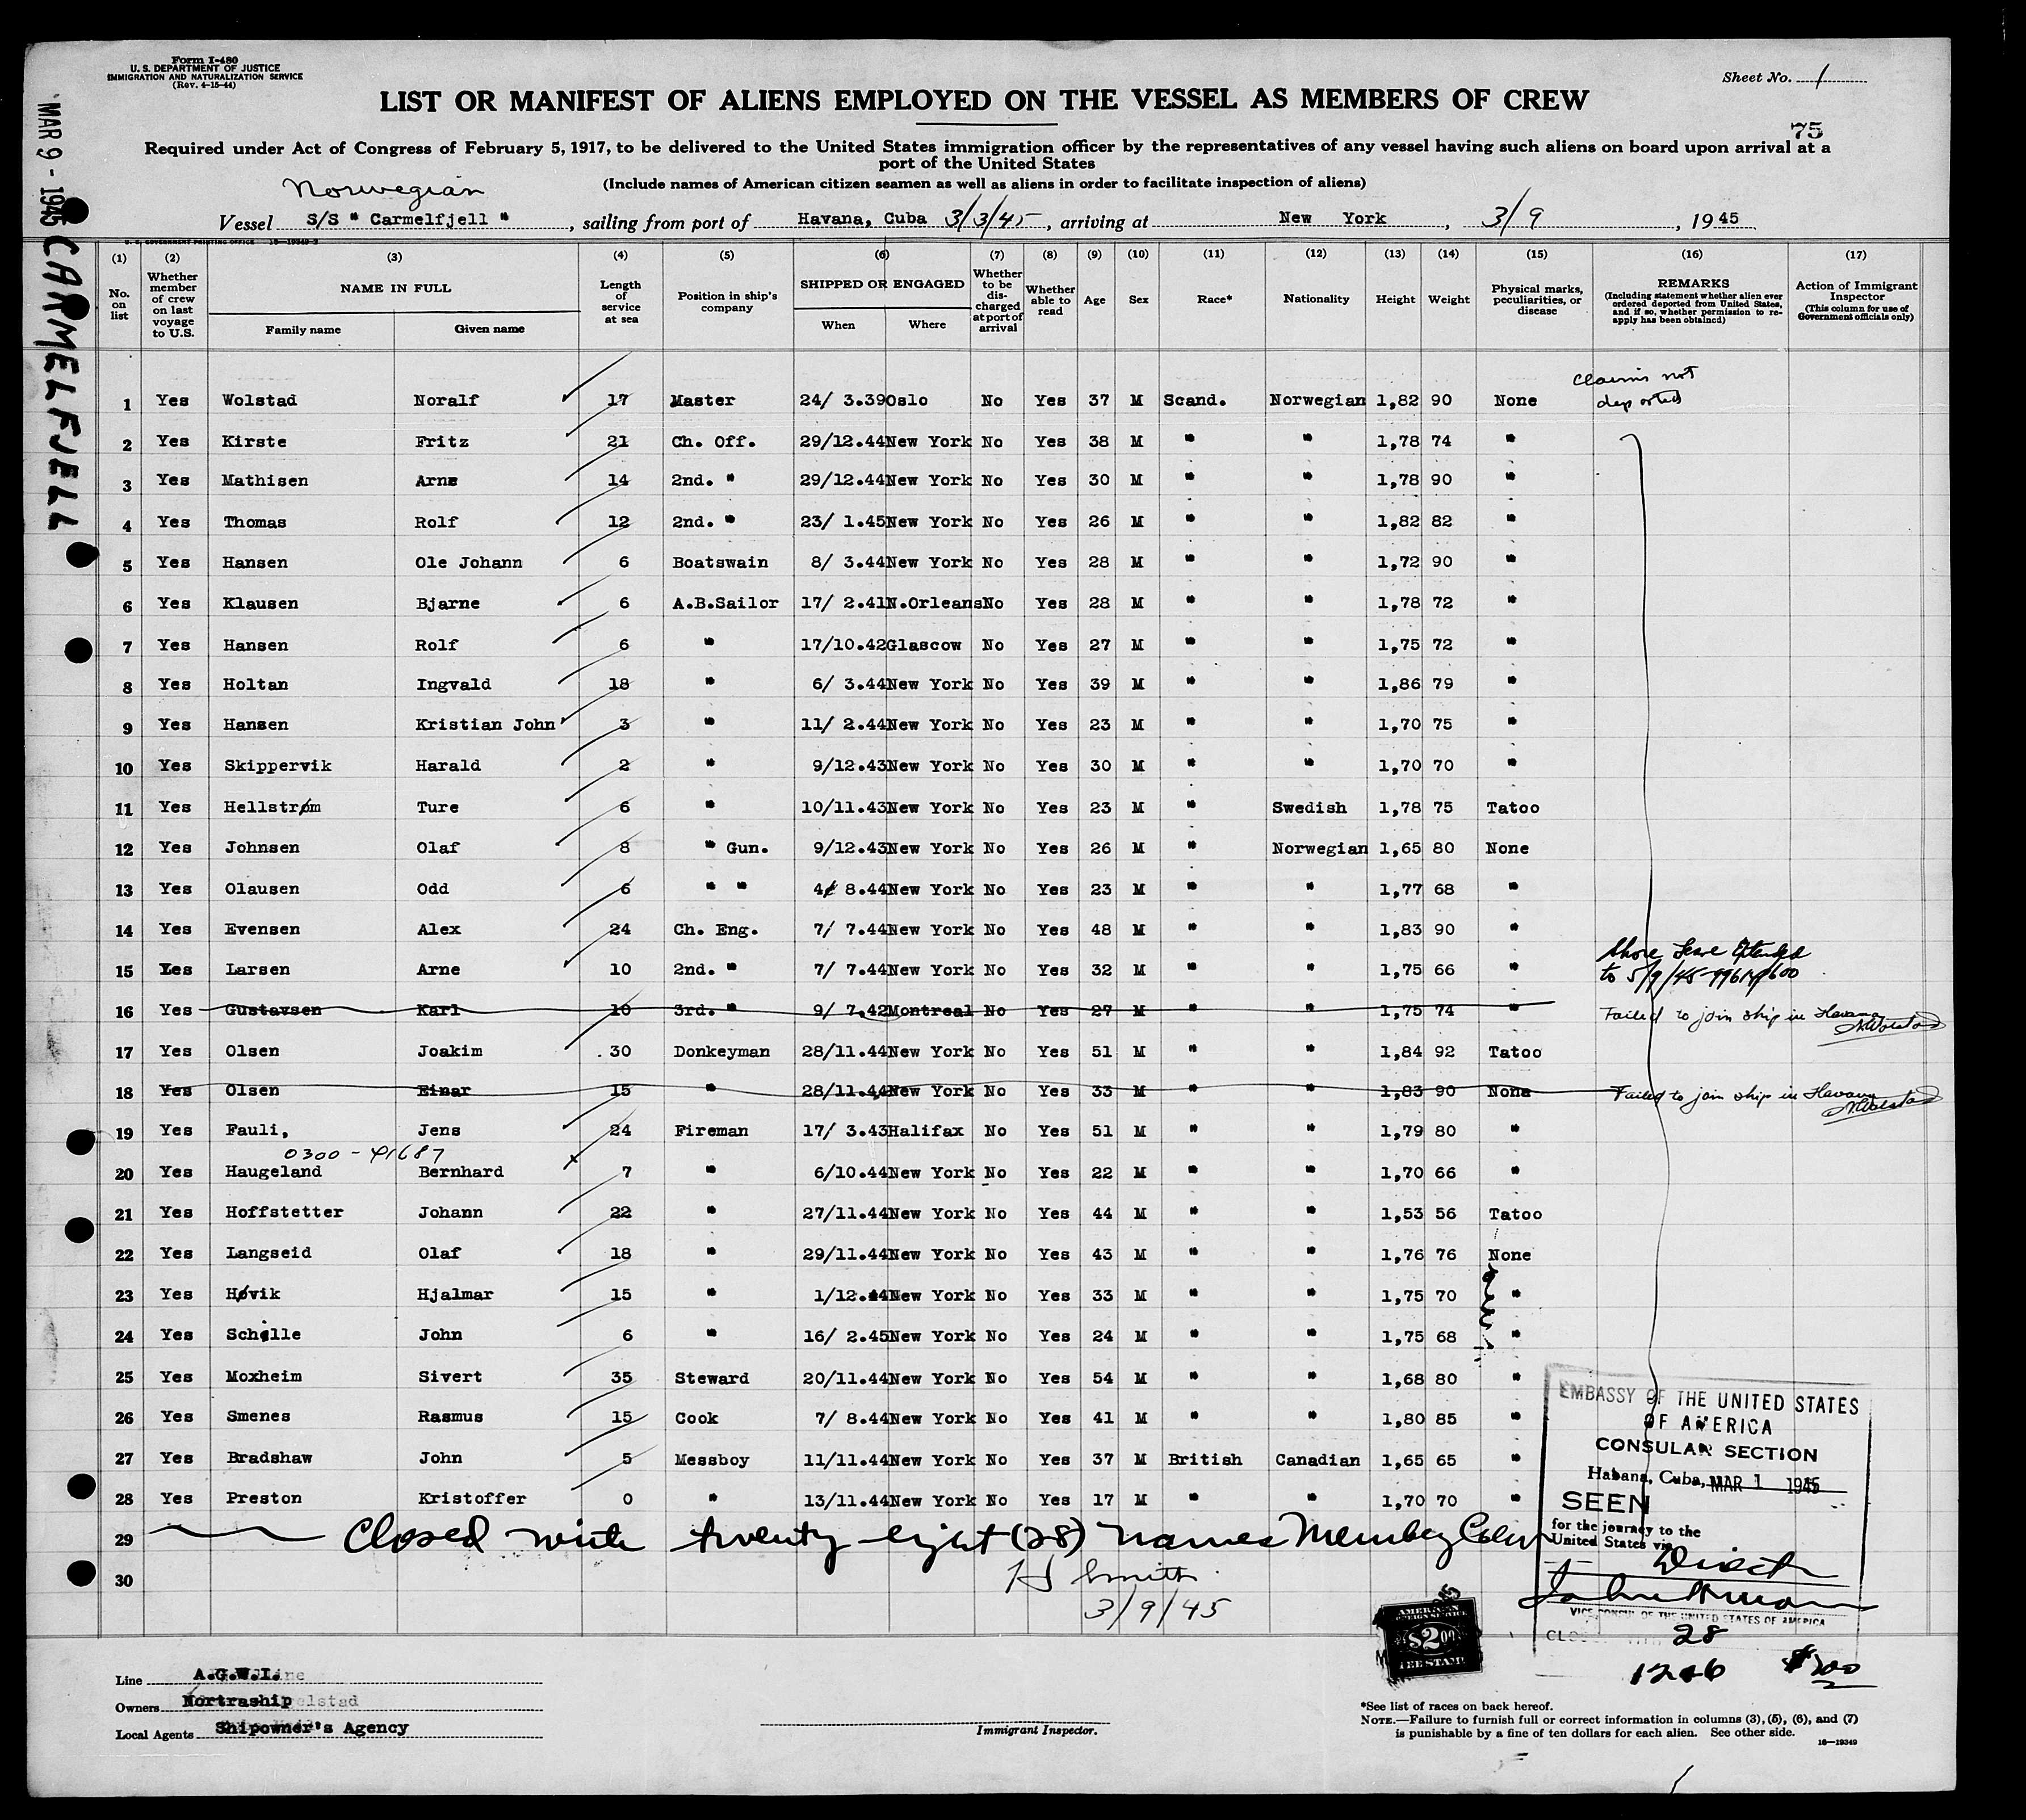 Form I-480
U. S. DEPARTMENT OF JUSTICE
IMMIGRATION AND NATURALIZATION SERVICE
(Rev. 4-15-44)
Sheet No. 1
LIST OR MANIFEST OF ALIENS EMPLOYED ON THE VESSEL AS MEMBERS OF CREW
75
Required under Act of Congress of February 5, 1917, to be delivered to the United States immigration officer by the representatives of any vessel having such aliens on board upon arrival at a
port of the United States
(Include names of American citizen seamen as well as aliens in order to facilitate inspection of aliens)
Norwegian
Vessel S/S " Carmelfjell ", sailing from port of Havana, Cuba 3/3/45, arriving at New York, 3/9, 1945
MAR 9 - 1945
CARMELFJELL
U. S. GOVERNMENT PRINTING OFFICE 16-19349-2
(1) No. on list (2) Whether member of crew on last voyage to U.S. (3) NAME IN FULL Family name Given name (4) Length of service at sea (5) Position in ship's company (6) SHIPPED OR ENGAGED When Where (7) Whether to be discharged at port of arrival (8) Whether able to read (9) Age (10) Sex (11) Race* (12) Nationality (13) Height (14) Weight (15) Physical marks, peculiarities, or disease (16) REMARKS (Including statement whether alien ever ordered deported from United States, and if so, whether permission to re-apply has been obtained) (17) Action of Immigrant Inspector (This column for use of Government officials only)
1 Yes Wolstad Noralf 17 Master 24/ 3.39 Oslo No Yes 37 M Scand. Norwegian 1,82 90 None claims not deported
2 Yes Kirste Fritz 21 Ch. Off. 29/12.44 New York No Yes 38 M " " 1,78 74 "
3 Yes Mathisen Arne 14 2nd. " 29/12.44 New York No Yes 30 M " " 1,78 90 "
4 Yes Thomas Rolf 12 2nd. " 23/ 1.45 New York No Yes 26 M " " 1,82 82 "
5 Yes Hansen Ole Johann 6 Boatswain 8/ 3.44 New York No Yes 28 M " " 1,72 90 "
6 Yes Klausen Bjarne 6 A.B.Sailor 17/ 2.41 N.Orleans No Yes 28 M " " 1,78 72 "
7 Yes Hansen Rolf 6 " 17/10.42 Glascow No Yes 27 M " " 1,75 72 "
8 Yes Holtan Ingvald 18 " 6/ 3.44 New York No Yes 39 M " " 1,86 79 "
9 Yes Hansen Kristian John 3 " 11/ 2.44 New York No Yes 23 M " " 1,70 75 "
10 Yes Skippervik Harald 2 " 9/12.43 New York No Yes 30 M " " 1,70 70 "
11 Yes Hellstrøm Ture 6 " 10/11.43 New York No Yes 23 M " Swedish 1,78 75 Tatoo
12 Yes Johnsen Olaf 8 " Gun. 9/12.43 New York No Yes 26 M " Norwegian 1,65 80 None
13 Yes Olausen Odd 6 " " 4/ 8.44 New York No Yes 23 M " " 1,77 68 "
14 Yes Evensen Alex 24 Ch. Eng. 7/ 7.44 New York No Yes 48 M " " 1,83 90 "
15 Yes Larsen Arne 10 2nd. " 7/ 7.44 New York No Yes 32 M " " 1,75 66 " Shore Leave Extended to 5/9/45
16 Yes Gustavsen Karl 10 3rd. " 9/ 7.42 Montreal No Yes 27 M " " 1,75 74 " Failed to join ship in Havana NWolstad
17 Yes Olsen Joakim 30 Donkeyman 28/11.44 New York No Yes 51 M " " 1,84 92 Tatoo
18 Yes Olsen Einar 15 " 28/11.44 New York No Yes 33 M " " 1,83 90 None Failed to join ship in Havana NWolstad
19 Yes Fauli, Jens 24 Fireman 17/ 3.43 Halifax No Yes 51 M " " 1,79 80 "
0300 - 91687
20 Yes Haugeland Bernhard 7 " 6/10.44 New York No Yes 22 M " " 1,70 66 "
21 Yes Hoffstetter Johann 22 " 27/11.44 New York No Yes 44 M " " 1,53 56 Tatoo
22 Yes Langseid Olaf 18 " 29/11.44 New York No Yes 43 M " " 1,76 76 None
23 Yes Høvik Hjalmar 15 " 1/12.44 New York No Yes 33 M " " 1,75 70 "
24 Yes Schølle John 6 " 16/ 2.45 New York No Yes 24 M " " 1,75 68 "
25 Yes Moxheim Sivert 35 Steward 20/11.44 New York No Yes 54 M " " 1,68 80 "
26 Yes Smenes Rasmus 15 Cook 7/ 8.44 New York No Yes 41 M " " 1,80 85 "
27 Yes Bradshaw John 5 Messboy 11/11.44 New York No Yes 37 M British Canadian 1,65 65 "
28 Yes Preston Kristoffer 0 " 13/11.44 New York No Yes 17 M " " 1,70 70 "
29 Closed with twenty eight (28) names
30 HJ Smith
3/9/45
EMBASSY OF THE UNITED STATES
OF AMERICA
CONSULAR SECTION
Habana, Cuba, MAR 1 1945
SEEN
for the journey to the
United States via
Direct
VICE CONSUL OF THE UNITED STATES OF AMERICA
28
1246 $2.00
AMERICAN
FOREIGN SERVICE
$2.00
FEE STAMP
Line A.G.W.I.
Owners Nortraship
Local Agents Shipowner's Agency
Immigrant Inspector.
*See list of races on back hereof.
NOTE.—Failure to furnish full or correct information in columns (3), (5), (6), and (7)
is punishable by a fine of ten dollars for each alien. See other side.
16-19349